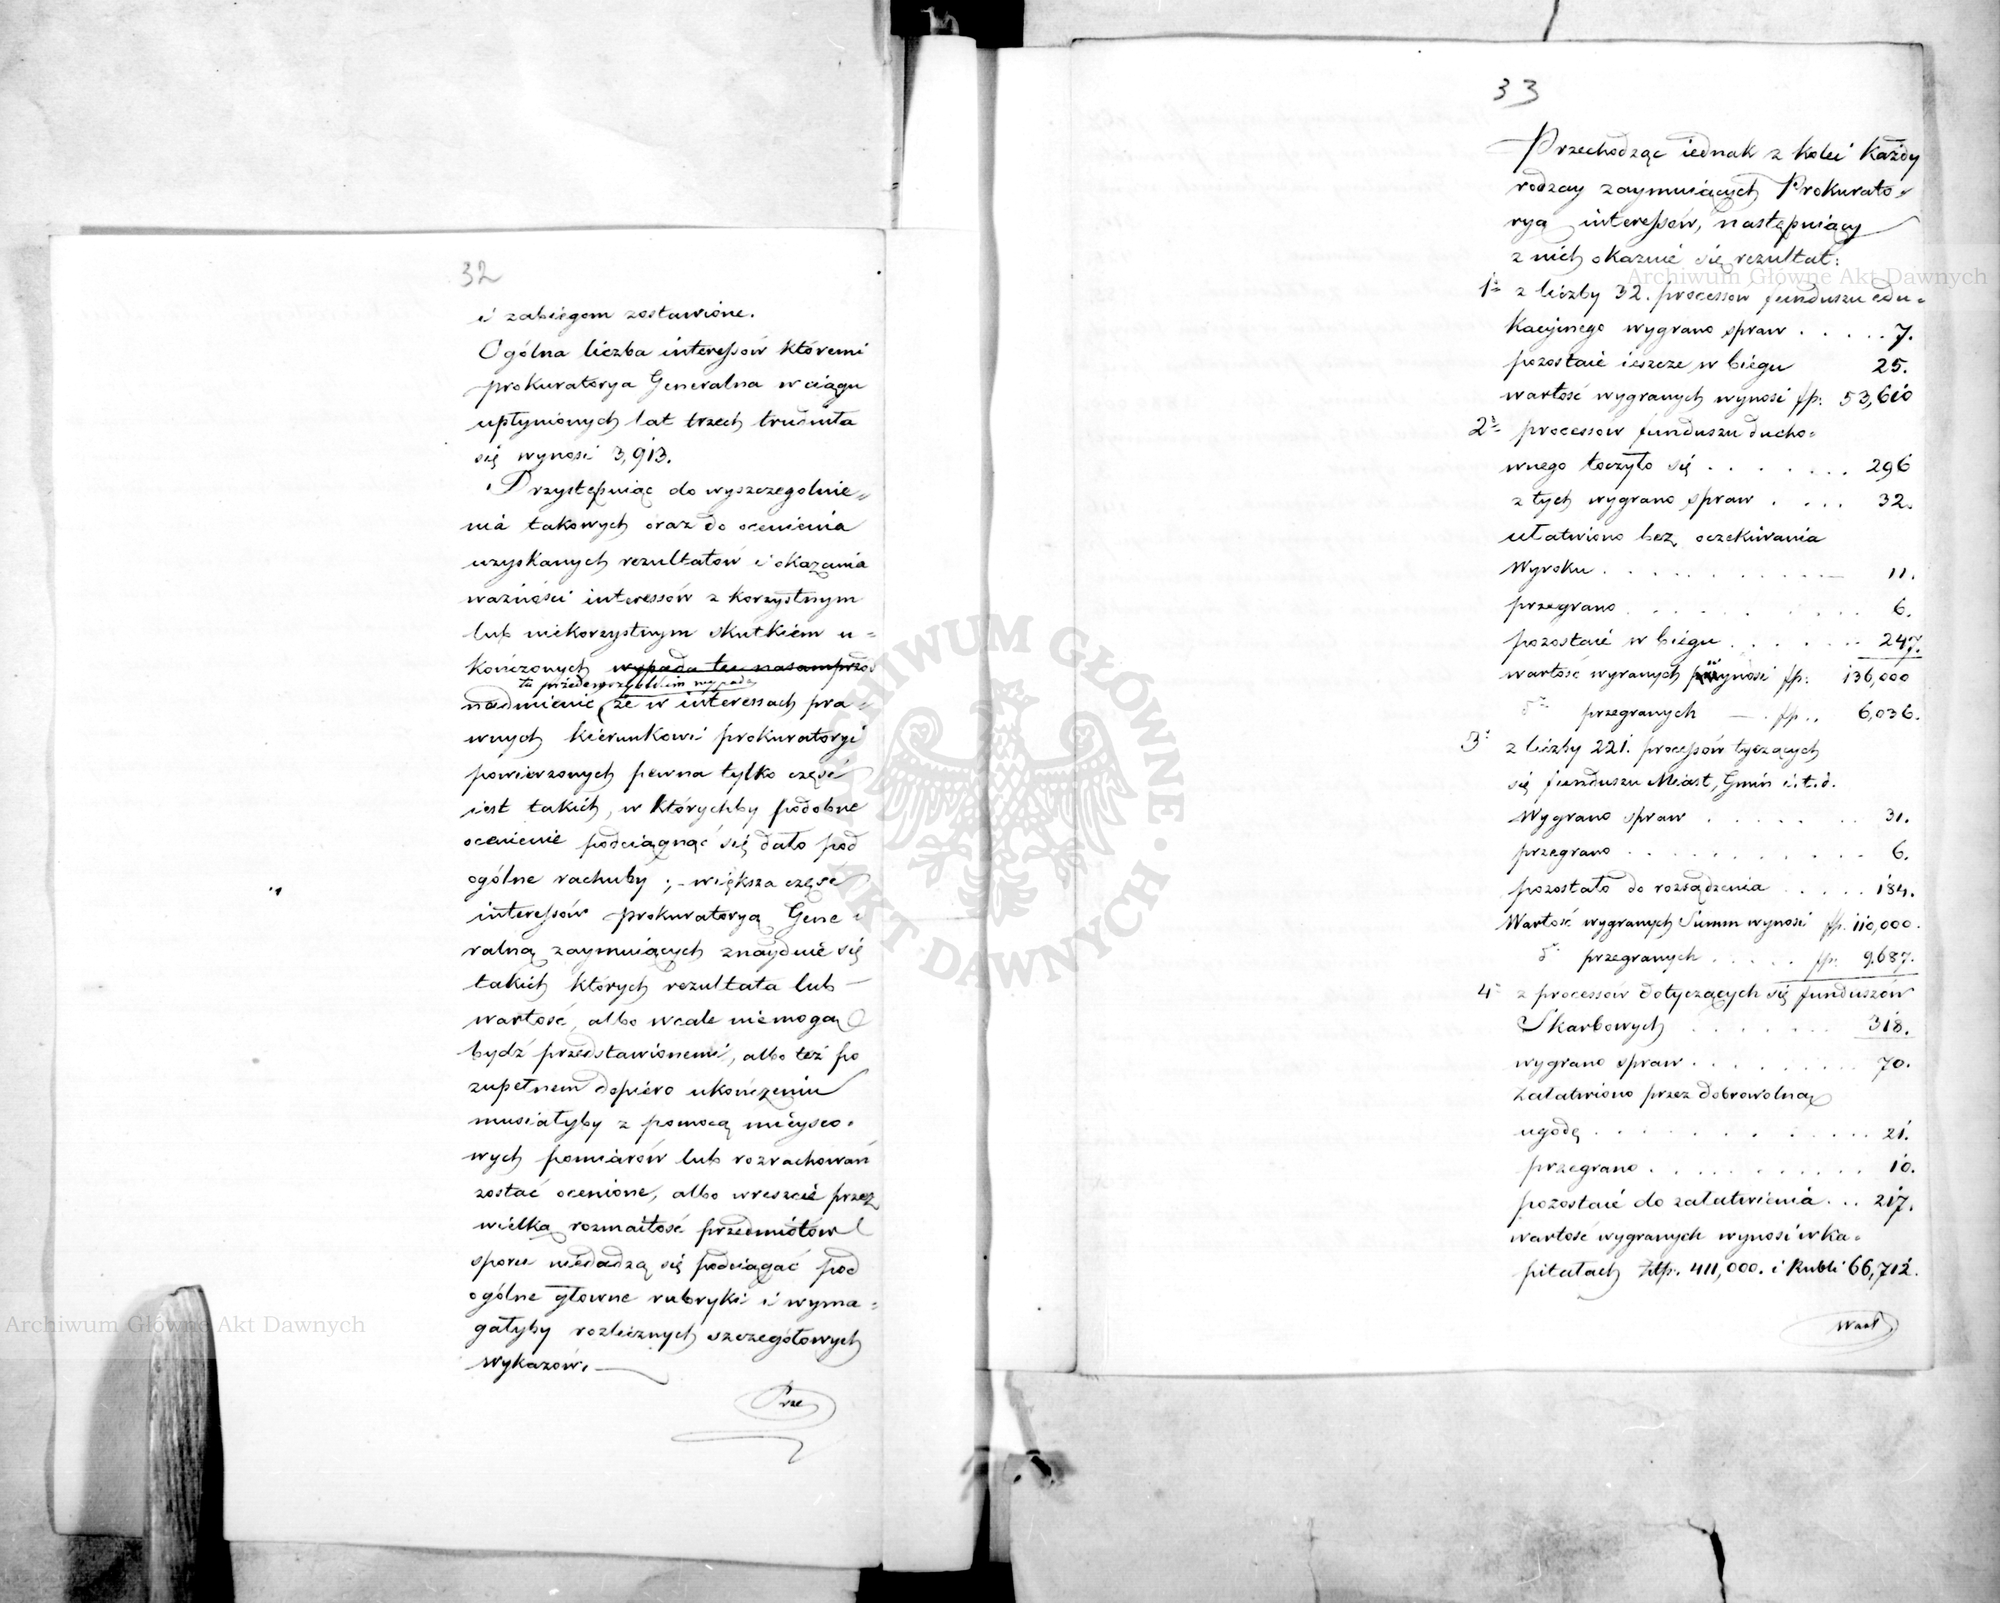 32
i zabiegom zostawione.
Ogólna liczba interessów któremi
prokuratorya Generalna w ciągu
upłynionych lat trzech trudniła
się wynosi 3,913.
Przystępuiąc do wyszczegolnie„
nia takowych oraz do ocenienia
uzyskanych rezultatów i okazania
ważności interessów z korzystnym
lub niekorzystnym skutkiem u=
kończonych wypada tu nasamprzod
tu przedewszystkiem wypada
nadmienić, że w interessach pra„
wnych kierunkowi prokuratoryi
powierzonych pewna tylko część
iest takich, w którychby podobne
ocenienie podciągnąć się dało pod
ogólne rachuby ;– większa część
interessów prokuratoryą Gene„
ralną zaymuiących znayduie się
takich których rezultata lub
wartość, albo wcale niemogą
bydź przedstawionemi, albo też po
zupełnem dopiéro ukończeniu
musiałyby z pomocą mieysco„
wych pomiarów lub rozrachowań
zostać ocenione, albo wreszcie przez
wielką rozmaitość przedmiotów
sporu niedadzą się podciągać pod
ogólne głowne rubryki i wyma=
gałyby rozlicznych szczegółowych
wykazów.—
Prze
33
Przechodząc iednak z kolei każdy
rodzay zaymuiących Prokurato„
ryą interessów, następuiący
z nich okazuie się rezultat:
1º z liczby 32. processow funduszu edu„
kacyinego wygrano spraw . . . . . 7.
pozostaie ieszcze w biégu 25.
wartość wygranych wynosi fp: 53,610
2º processow funduszu ducho„
wnego toczyło się . . . . . . . 296
z tych wygrano spraw . . . . 32.
ułatwiono bez oczekiwania
Wyroku . . . . . . . . . . . 11.
przegrano . . . . . . . . . . 6.
pozostaie w biégu . . . . . . . 247.
wartość wygranych wynosi fp: 136,000
dº przegranych — . fp.. 6,036.
3º z liczby 221. processów tyczących
się funduszu Miast, Gmin i.t.d.
Wygrano spraw . . . . . . . 31.
przegrano . . . . . . . . . . 6.
pozostało do rozsądzenia . . . . . 184.
Wartość wygranych Summ wynosi fp. 110,000.
dº przegranych . . . . . fp. 9,687.
4º z processów dotyczących się funduszów
Skarbowych . . . . . . . 318.
wygrano spraw . . . . . . . . . 70.
załatwiono przez dobrowolną
ugodę . . . . . . . . . . . . 21.
przegrano . . . . . . . . . . 10.
pozostaie do załatwienia . . . 217.
wartość wygranych wynosi w ka„
pitałach Złtp. 411,000. i Rubli 66,712.
Wart
Archiwum Główne Akt Dawnych
Archiwum Główne Akt Dawnych
ARCHIWUM GŁÓWNE · AKT DAWNYCH ·